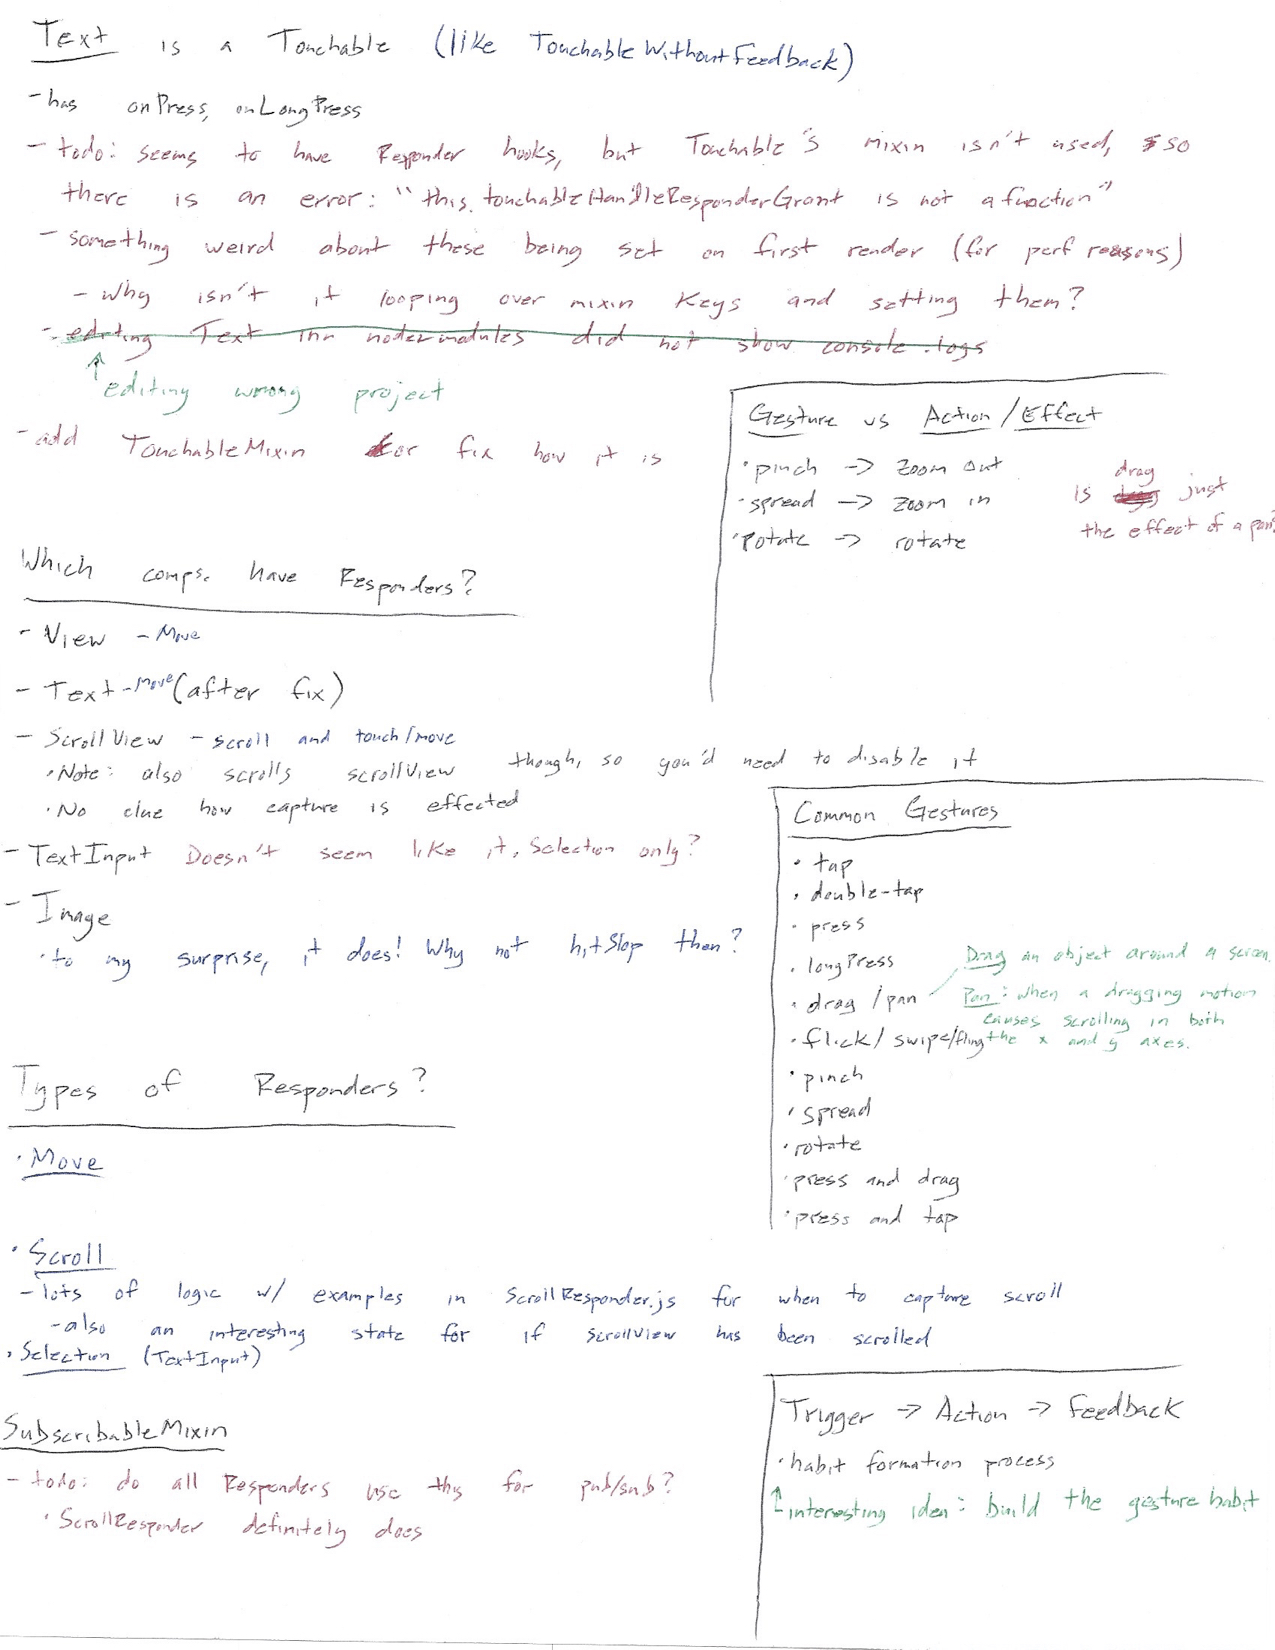 Text is a Touchable (like TouchableWithoutFeedback)
- has onPress, onLongPress
- todo: seems to have Responder hooks, but Touchable's mixin isn't used, so
there is an error: "this.touchableHandleResponderGrant is not a function"
- something weird about these being set on first render (for perf reasons)
- Why isn't it looping over mixin keys and setting them?
- editing Text inn node_modules did not show console.logs
editing wrong project
- add TouchableMixin or fix how it is
Gesture vs Action/Effect
• pinch -> zoom out
• spread -> zoom in
• rotate -> rotate
is drag just
the effect of a pan?
Which comps. have Responders?
- View - Move
- Text - Move (after fix)
- ScrollView - scroll and touch/move
• Note: also scrolls scrollView though, so you'd need to disable it
• No clue how capture is effected
- TextInput Doesn't seem like it. Selection only?
- Image
• to my surprise, it does! Why not hitSlop then?
Common Gestures
• tap
• double-tap
• press
• longPress
• drag/pan
• flick/swipe/fling
• pinch
• spread
• rotate
• press and drag
• press and tap
Drag an object around a screen.
Pan: when a dragging motion
causes scrolling in both
the x and y axes.
Types of Responders?
• Move
• Scroll
- lots of logic w/ examples in ScrollResponder.js for when to capture scroll
- also an interesting state for if scrollView has been scrolled
• Selection (TextInput)
SubscribableMixin
- todo: do all Responders use this for pub/sub?
• ScrollResponder definitely does
Trigger -> Action -> Feedback
• habit formation process
interesting idea: build the gesture habit